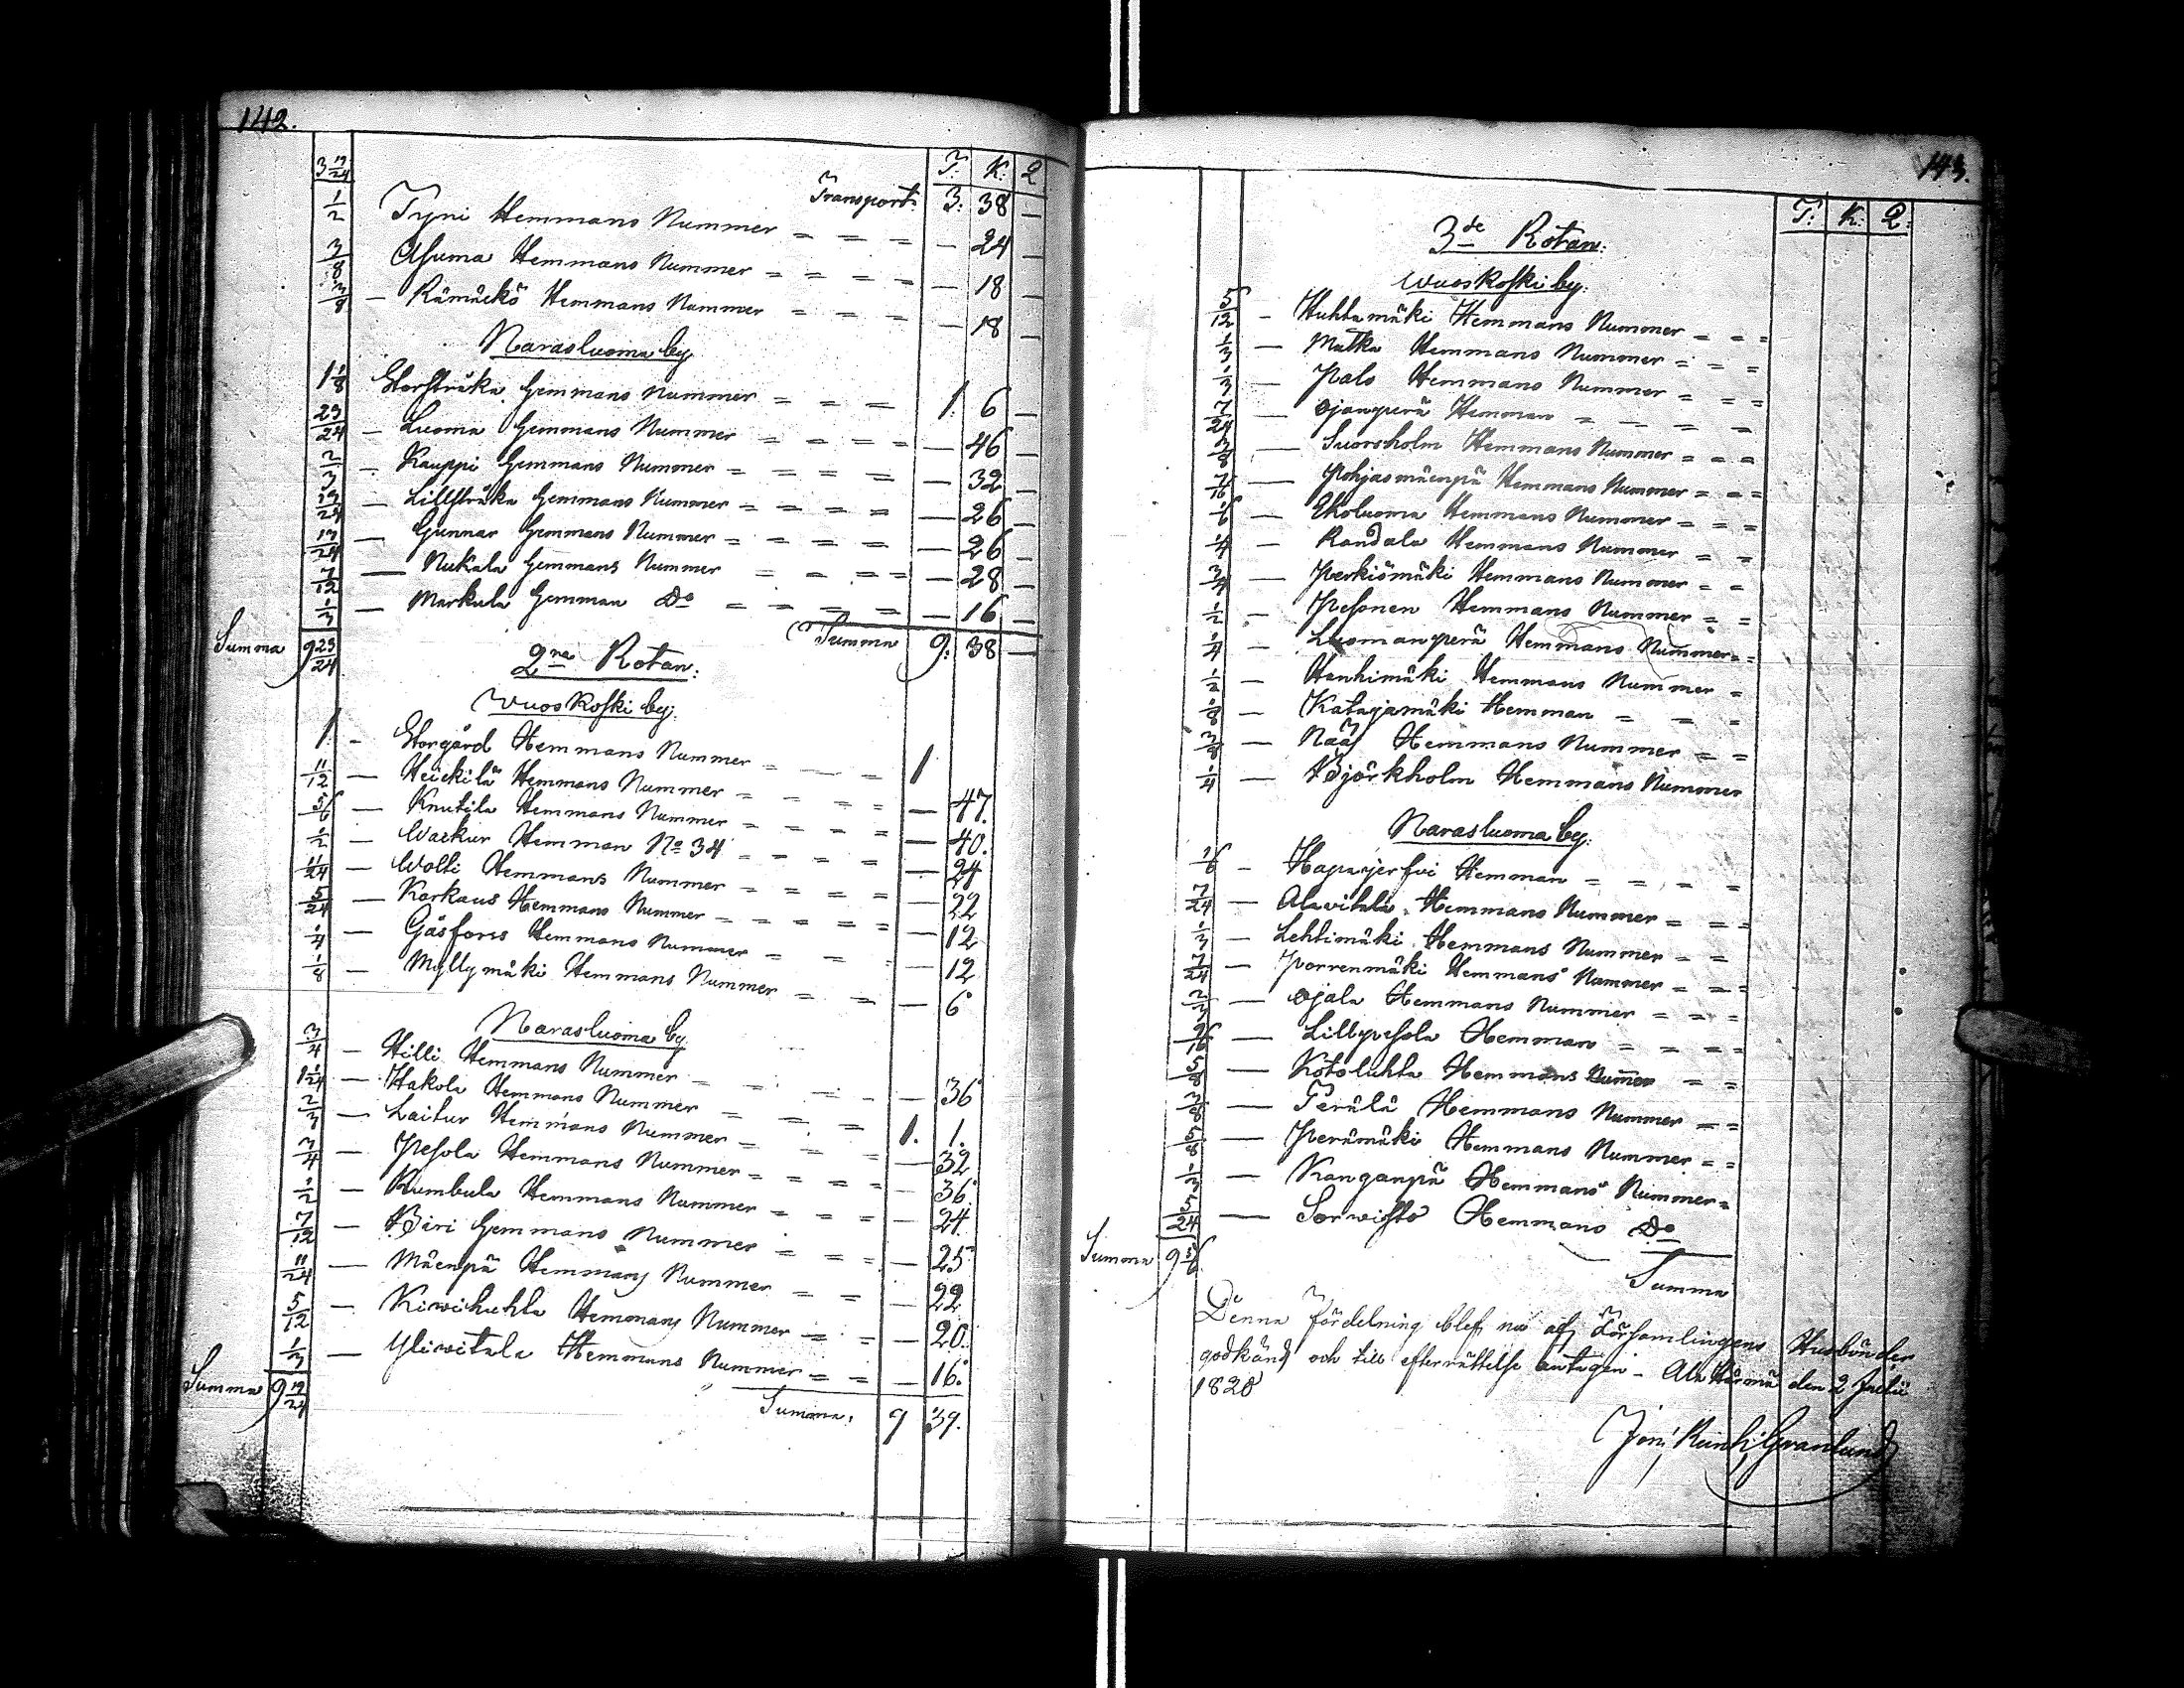 142.
T: K: Q
3 19/24 Transport: 3: 38 —
1/2 Tyni Hemmans Nummer = = = — 24 —
3/8 Asuma Hemmans Nummer = = = = — 18 —
3/8 — Rämäckö Hemmans Nummer = = = — 18 —
Narasluoma by
1 1/8 Storstråka Hemmans Nummer = = = 1: 6 —
23/24 — Luoma Hemmans Nummer = = = = — 46 —
2/3 — Kauppi Hemmans Nummer = = = = — 32 —
13/24 — Lillstråka Hemmans Nummer = = = = — 26 —
13/24 — Gunnar Hemmans Nummer = = = = — 26 —
7/12 — Nukala Hemmans Nummer = = = = — 28 —
1/3 — Markula Hemman Do = = = = — 16 —
Summa 9 23/24 Summa 9: 38 —
2ra Rotan:
Wuoskoski by:
1 — Storgård Hemmans Nummer = — = 1
11/12 — Heickilä Hemmans Nummer = = = = — 47.
5/6 — Knutila Hemmans Nummer = = = = — 40.
1/2 — Wackur Hemman No 34 = = = = — 24
11/24 — Wolti Hemmans Nummer = = = = — 22
5/24 — Karkaus Hemmans Nummer = = = = = — 12
1/4 — Gäsfors Hemmans Nummer = = = — 12
1/8 — Myllymäki Hemmans Nummer = = — 6
Narasluoma by
3/4 — Hilli Hemmans Nummer = = — 36
1 1/24 — Hakola Hemmans Nummer = = = 1. 1.
2/3 — Laitur Hemmans Nummer = = = — 32
3/4 — Pesola Hemmans Nummer = = = = — 36.
1/2 — Kumbula Hemmans Nummer = = = — 24.
7/12 — Biri Hemmans Nummer = = = — 25
11/24 — Mäenpä Hemmans Nummer = = — 22
5/12 — Kiwihuhta Hemmans Nummer = = — 20.
1/3 — Yliwitala Hemmans Nummer = = — 16.
Summa 9 19/24 Summa: 9 39.
143.
T: K: Q:
3de Rotan:
Wuoskoski by:
5/12 — Huhtamäki Hemmans Nummer = = =
1/3 — Matka Hemmans Nummer = = =
1/3 — Palo Hemmans Nummer = = =
7/24 — Ojanperä Hemman = = = =
3/8 — Suorsholm Hemmans Nummer = = =
7/16 — Pohjasmäenpä Hemmans Nummer = = =
1/6 — Ekoluoma Hemmans Nummer = = =
1/4 — Randala Hemmans Nummer = =
3/4 — Perkiömäki Hemmans Nummer = =
1/2 — Pesonen Hemmans Nummer = =
1/4 — Luomanperä Hemmans Nummer = =
1/2 — Hanhimäki Hemmans Nummer =
1/8 — Katajamäki Hemman = = =
3/8 — Nääs Hemmans Nummer = =
1/4 — Björkholm Hemmans Nummer
Narasluoma by:
1/6 — Hapajerfvi Hemman = = = =
7/24 — Alawitala Hemmans Nummer = = =
1/3 — Lehtimäki Hemmans Nummer = =
7/24 — Porrenmäki Hemmans Nummer = = =
2/3 — Ojala Hemmans Nummer = = =
9/16 — Lillpesola Hemman = = = =
5/8 — Kotoluhta Hemmans Nummer = =
3/8 — Terälä Hemmans Nummer = =
5/8 — Perämäki Hemmans Nummer = =
1/3 — Kanganpä Hemmans Nummer =
5/24 — Sorwisto Hemmans Do
Summa 9 5/6 Summa
Denna fördelning blef nu af Församlingens Husbönder
godkänd och till efterrättelse antagen — Ala Härmä den 2 Julii
1820
Granlund